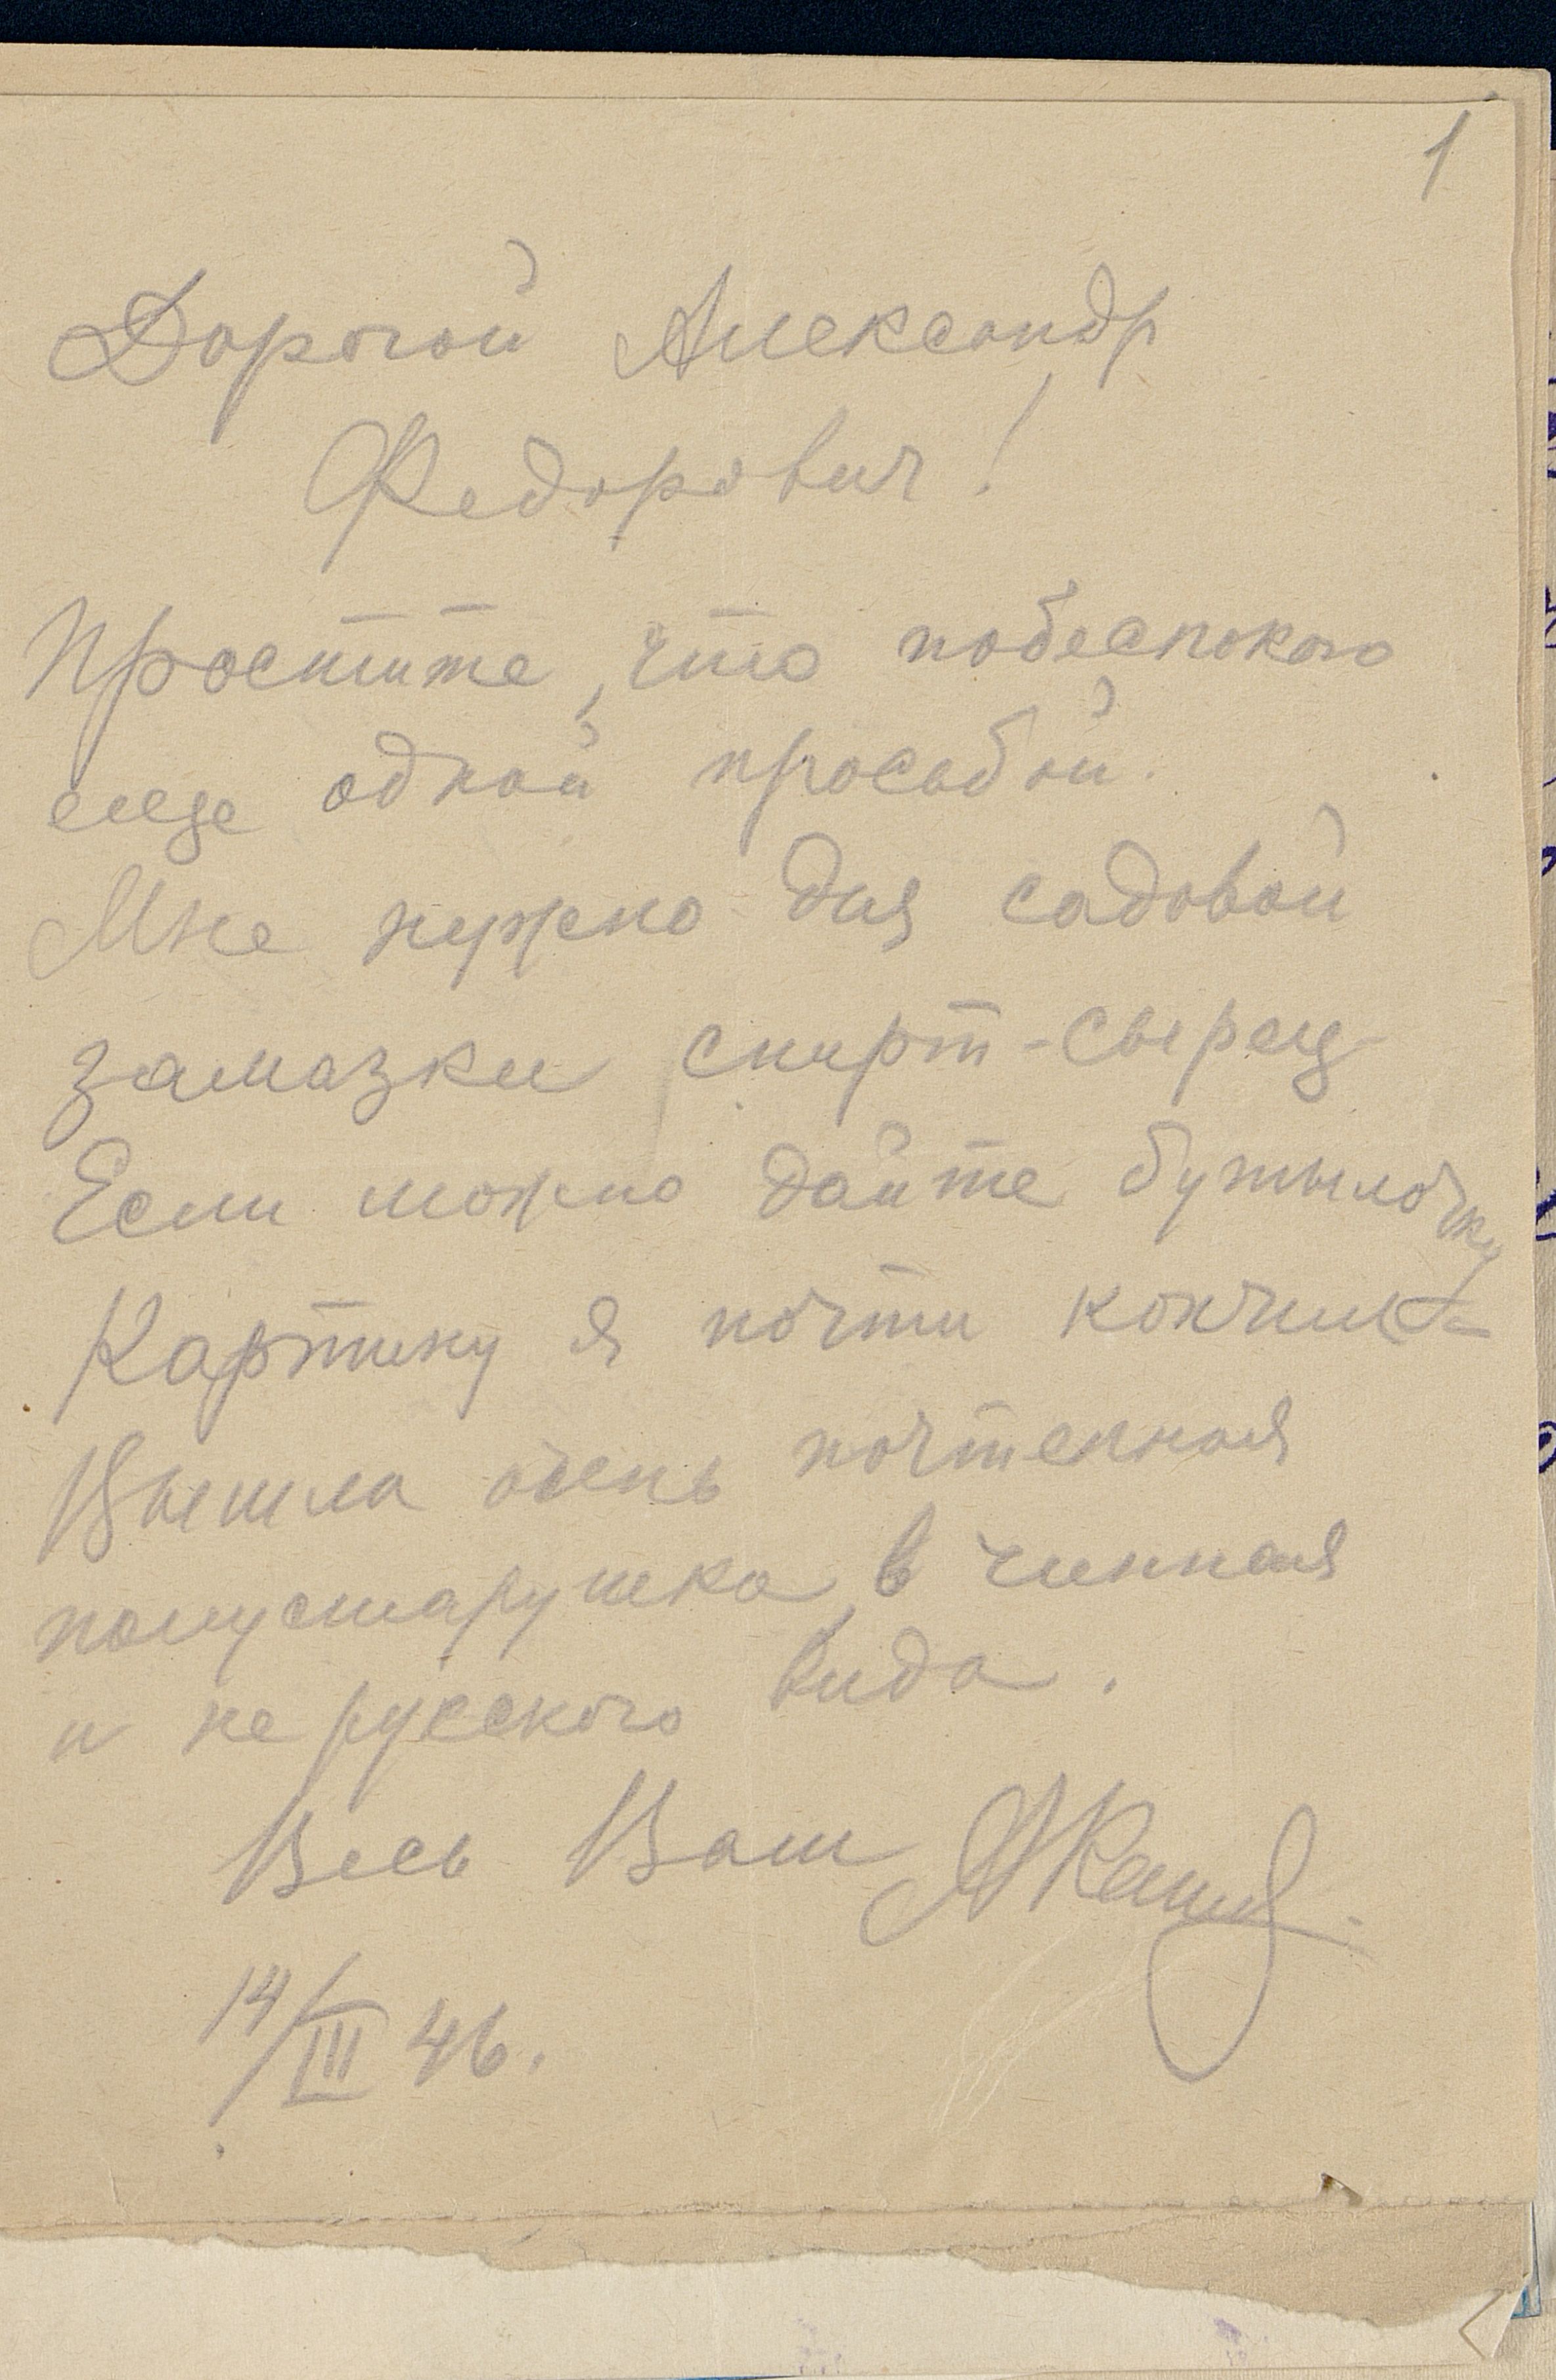 1
Дорогой Александр
Федорович!
Простите, что побеспокою
еще одной просьбой.
Мне нужно для садовой
замазки спирт-сырец
Если можно дайте бутылочку
Картину я почти кончил –
Вышла очень почтенная
полустарушка, в чинная
и не русского вида.
Весь Ваш
14/III 46.